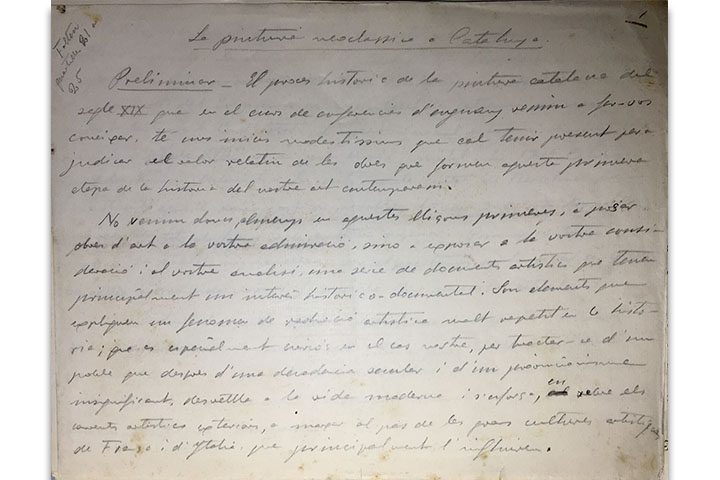 1
La pintura neoclassica a Catalunya.
Preliminar — El procés historic de la pintura catalana del
segle XIX que en el curs de conferencies d'enguany venim a fer-vos
coneixer, te uns inicis modestissims que cal tenir present per a
judicar el valor relatiu de les obres que formen aquesta primera
etapa de la historia del nostre art contemporani.
No venim doncs, almenys en aquestes lliçons primeres, a posar
obres d'art a la vostra admiració, sino a exposar a la vostra consi-
deració i al vostre analisi, una serie de documents artistics que tenen
principalment un interés historico-documental. Son elements que
expliquen un fenomen de artistica molt repetit en la histo-
ria; que es especialment en el cas nostre, per tractar-se d'un
poble que despres d'una decadencia secular i d'un provincianisme
insignificant, desvetlla a la vida moderna i s'esforça, en rebre els
corrents artistics exteriors, a marxar al pas de les grans cultures artistiques
de França i d'Italia que principalment l'influiren.